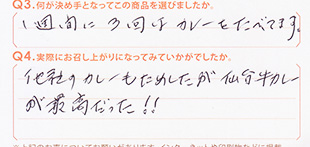 Q3.何が決め手となってこの商品を選びましたか。
1週間に3回はカレーをたべてます。
Q4.実際にお召し上がりになってみていかがでしたか。
他社のカレーもためしたが仙台牛カレー
が最高だった!!